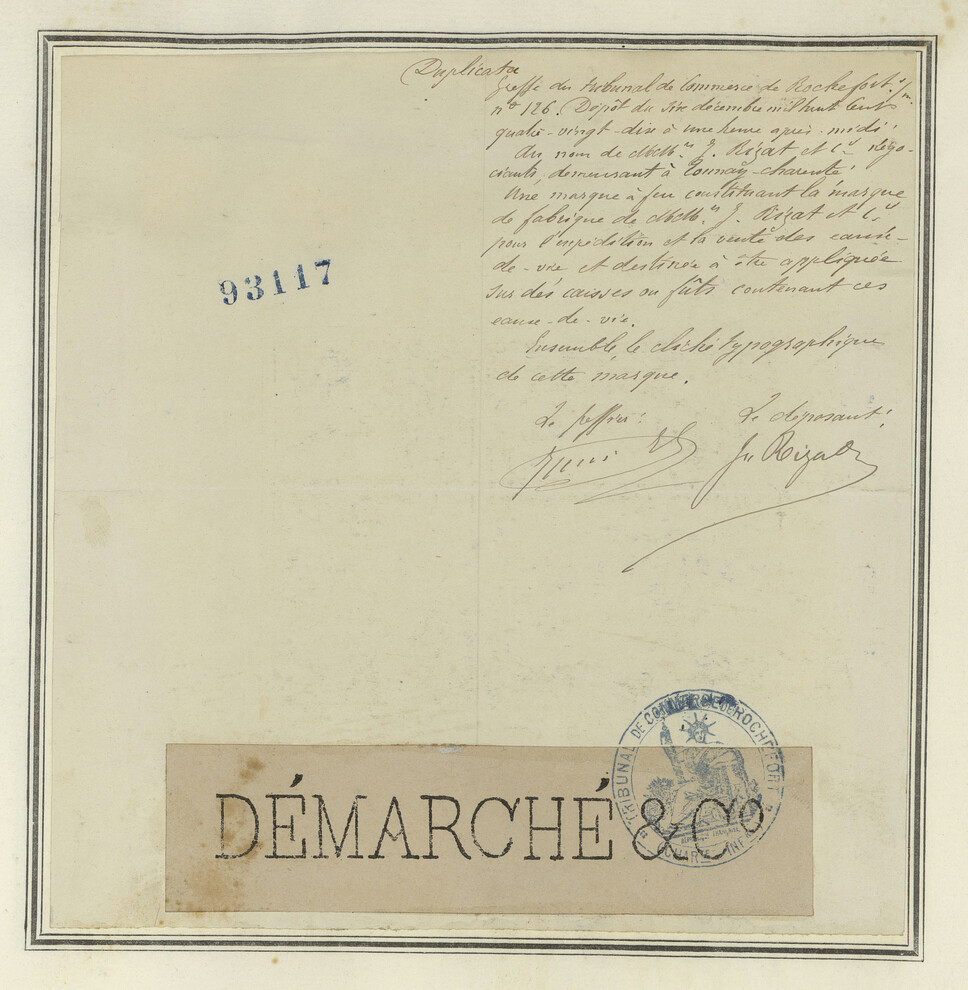 Duplicata
Greffe du tribunal de Commerce de Rochefort s/m.
n° 126. Dépôt du six décembre mil huit cent
quatre-vingt-dix à une heure après-midi.
Au nom de MM.rs J. Rizat et Cie Négo-
ciants, demeurant à Tonnay-Charente.
Une marque à feu constituant la marque
de fabrique de MM.rs J. Rizat et Cie
pour l'expédition et la vente des eaux-
de-vie et destinée à être appliquée
sur des caisses ou fûts contenant ces
eaux-de-vie.
Ensemble le cliché typographique
de cette marque.
93117
Le greffier:
Le déposant:
Jn Rizat
TRIBUNAL DE COMMERCE DE ROCHEFORT
CHARTE INFRE
DÉMARCHÉ & Co